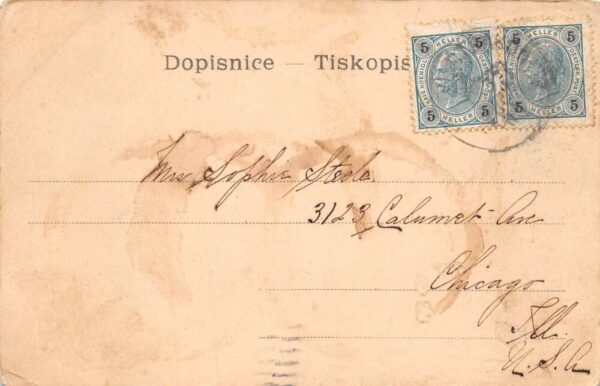 Dopisnice — Tiskopis
5 5
HELLER
5 5
HELLER
5 5
HELLER
5 5
HELLER
Mrs Sophie Stesle
3123 Calumet Ave
Chicago
Ill.
U.S.A